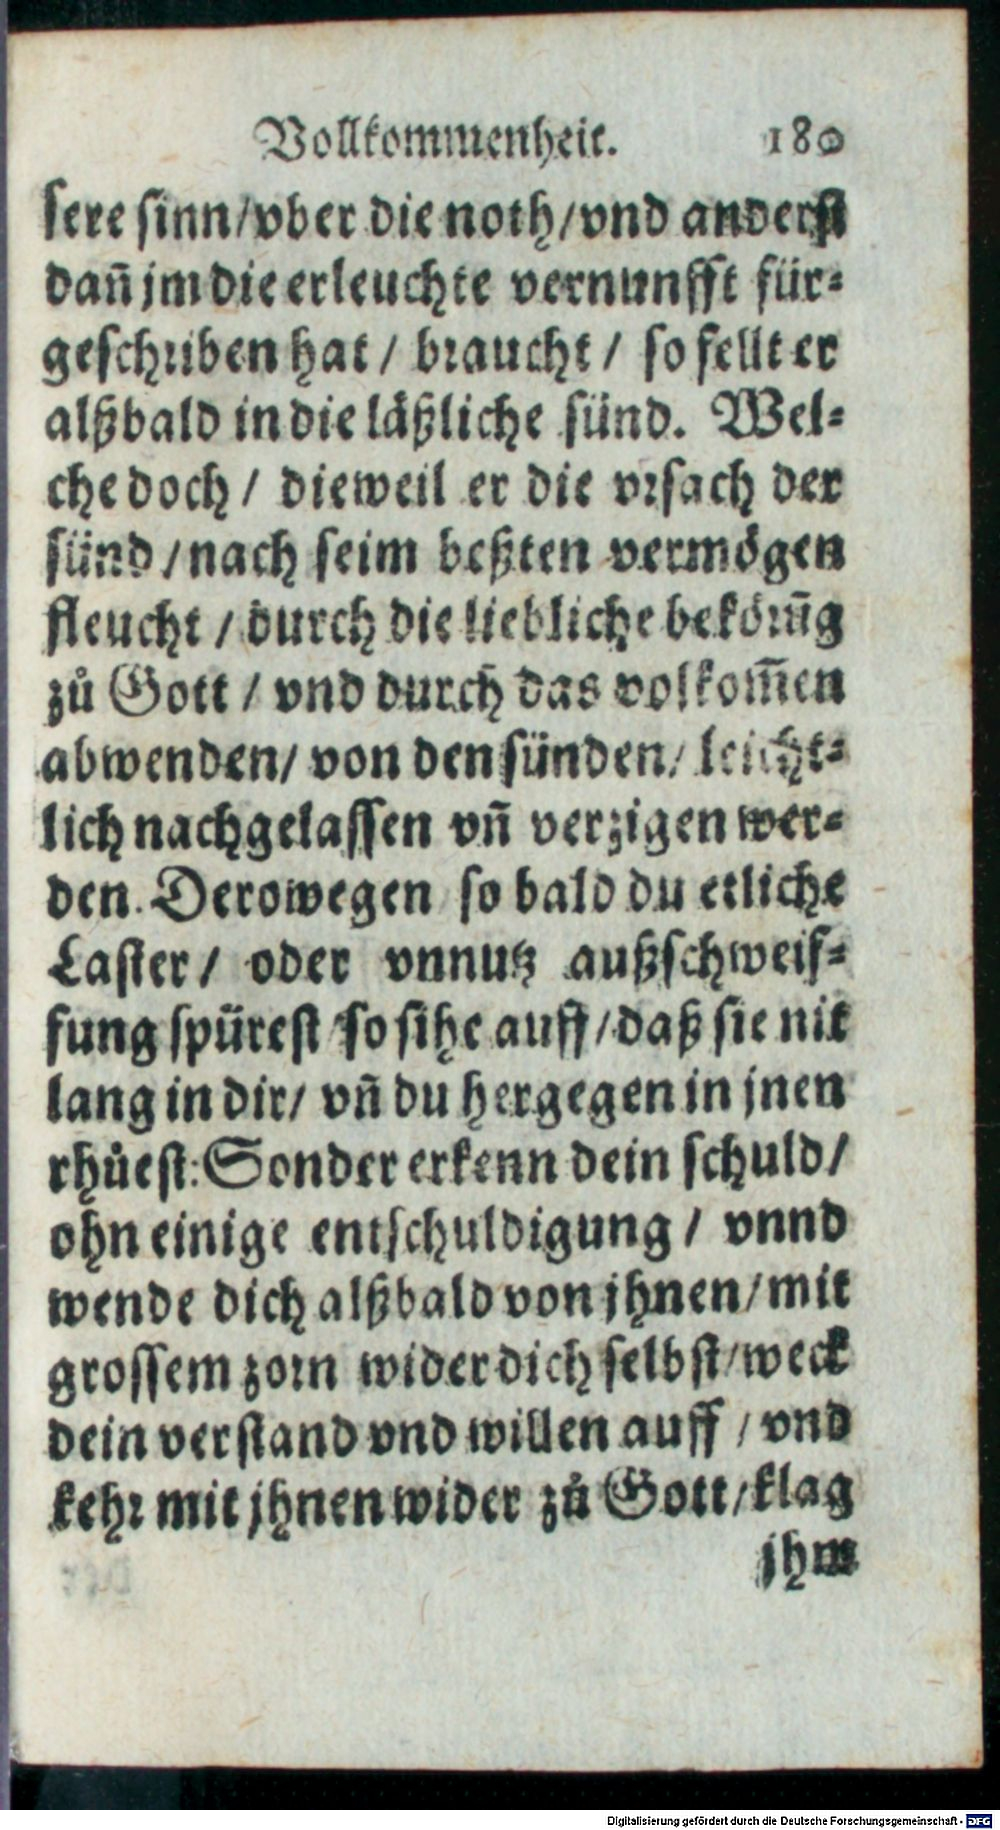 Vollkommenheit. 180
sere sinn/vber die noth/vnd anderst
dañ jm die erleuchte vernunfft für⸗
geschriben hat / braucht / so fellt er
alßbald in die läßliche sünd. Wel⸗
che doch / dieweil er die vrsach der
sünd / nach seim beßten vermögen
fleucht / durch die liebliche bekörũg
zů Gott / vnd durch das volkom̃en
abwenden/ von den sünden/ leicht⸗
lich nachgelassen vñ verzigen wer⸗
den. Derowegen so bald du etliche
Laster / oder vnnutz außschweif⸗
fung spürest / so sihe auff / daß sie nit
lang in dir/ vñ du hergegen in jnen
rhůest: Sonder erkenn dein schuld/
ohn einige entschuldigung / vnnd
wende dich alßbald von jhnen/mit
grossem zorn wider dich selbst/weck
dein verstand vnd willen auff / vnd
kehr mit jhnen wider zů Gott/klag
jhm
Digitalisierung gefördert durch die Deutsche Forschungsgemeinschaft - DFG